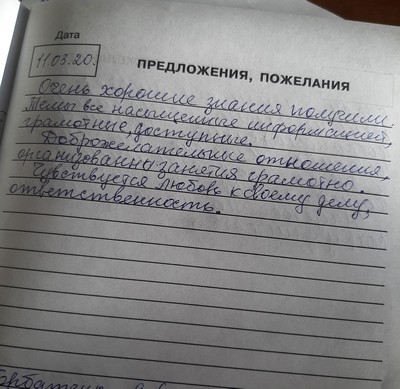 Дата
11.03.20.
ПРЕДЛОЖЕНИЯ, ПОЖЕЛАНИЯ
Очень хорошие знания получили.
Темы все насыщенные информацией,
грамотные, доступные.
Доброжелательные отношения.
организованны занятия грамотно.
Чувствуется любовь к своему делу,
ответственность.